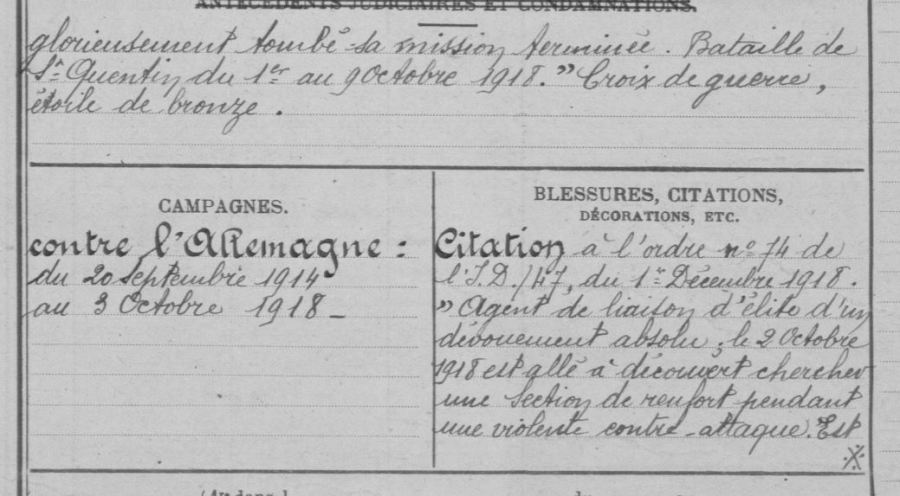 ANTÉCÉDENTS JUDICIAIRES ET CONDAMNATIONS.
glorieusement tombé sa mission terminée. Bataille de
St Quentin du 1er au 9 Octobre 1918." Croix de guerre,
étoile de bronze.
CAMPAGNES.
contre l'Allemagne :
du 20 Septembre 1914
au 3 Octobre 1918 _
BLESSURES, CITATIONS,
DÉCORATIONS, ETC.
Citation à l'ordre n° 74 de
l'I.D./47, du 1er Décembre 1918.
"Agent de liaison d'élite d'un
dévouement absolu, le 2 Octobre
1918 est allé à découvert chercher
une section de renfort pendant
une violente contre-attaque. Est
.X.